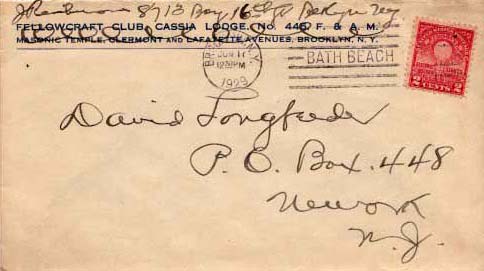 8713 Bay 16th St Bklyn NY
FELLOWCRAFT CLUB, CASSIA LODGE, No. 445, F. & A. M.
MASONIC TEMPLE, CLERMONT AND LAFAYETTE AVENUES, BROOKLYN, N. Y.
JUN 17
1929
BATH BEACH
2 CENTS 2
David Longfeeder
P. O. Box. 448
Newark
N. J.